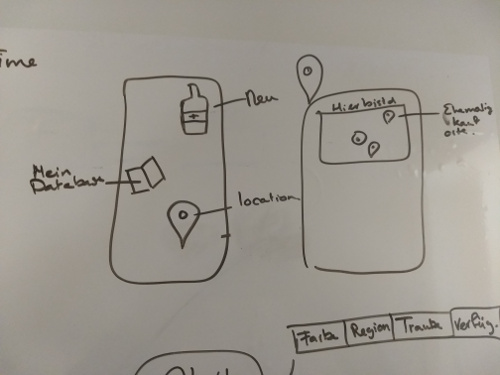 Time
Neu
Mein
Database
location
Hierbistd
Ehemalig
kauf
orte.
Farbe
Region
Traube
Verfüg.